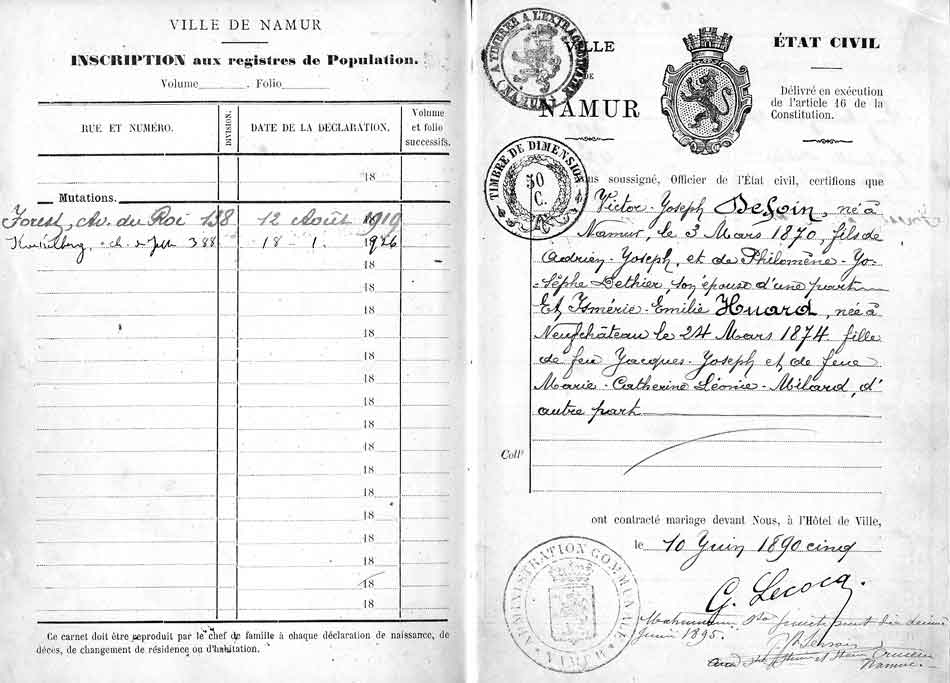 VILLE DE NAMUR
INSCRIPTION aux registres de Population.
Volume Folio
RUE ET NUMÉRO.
DIVISION.
DATE DE LA DECLARATION.
Volume
et folio
successifs.
18
Mutations.
Forest, Av. du Roi 138 12 Août 1919
388 18 - 1. 1926
18
18
18
18
18
18
18
18
18
18
18
18
18
18
18
18
Ce carnet doit être reproduit par le chef de famille à chaque déclaration de naissance, de
décès, de changement de résidence ou d'habitation.
A TIMBRE A L'EXTRAORDINAIRE
(NAMUR)
VILLE
DE
NAMUR
ÉTAT CIVIL
Délivré en exécution
de l'article 16 de la
Constitution.
TIMBRE DE DIMENSION
50
C.
us soussigné, Officier de l'État civil, certifions que
Victor-Joseph Desoin, né à
Namur, le 3 Mars 1870, fils de
Adrien-Joseph, et de Philomène-Jo-
-sèphe Dethier, son épouse d'une part
Et Ismérie-Emilie Huard, née à
Neufchâteau le 24 Mars 1874 fille
de feu Jacques-Joseph et de feue
Marie-Catherine Léonie-Milard, d'
autre part
Coll
ont contracté mariage devant Nous, à l'Hôtel de Ville,
le 10 Juin 1890 cinq
G. Lecocq.
ADMINISTRATION COMMUNALE
NAMUR
Juin 1895.
Namur.